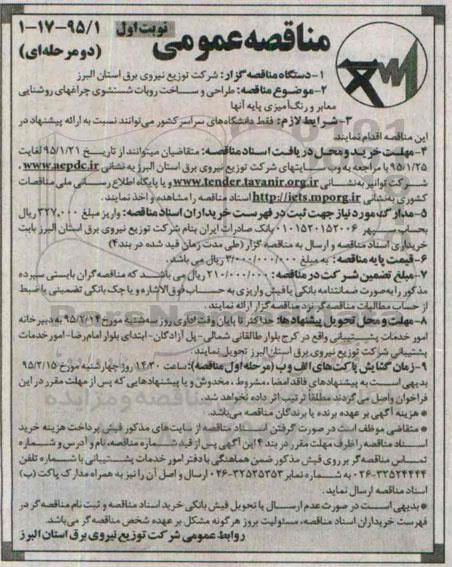 مناقصه عمومی
نوبت اول
۹۵/۱-۱۷-۱
(دو مرحله‌ای)
۱-دستگاه مناقصه گزار: شرکت توزیع نیروی برق استان البرز
۲-موضوع مناقصه: طراحی و ساخت روبات شستشوی چراغهای روشنایی
معابر و رنگ‌آمیزی پایه آنها
۳-شرایط لازم: فقط دانشگاه‌های سراسر کشور می‌توانند نسبت به ارائه پیشنهاد در
این مناقصه اقدام نمایند.
۴-مهلت خرید و محل دریافت اسناد مناقصه: متقاضیان میتوانند از تاریخ ۹۵/۱/۲۱ لغایت
۹۵/۱/۲۵ با مراجعه به وب سایتهای شرکت توزیع نیروی برق استان البرز به نشانی www.aepdc.ir،
شرکت توانیر به نشانی www.tender.tavanir.org.ir و یا پایگاه اطلاع رسانی ملی مناقصات
کشوری به نشانی http://iets.mporg.ir اسناد مناقصه را مشاهده و اخذ نمایند.
۵-مدارک مورد نیاز جهت ثبت در فهرست خریداران اسناد مناقصه: واریز مبلغ ۳۲۷,۰۰۰ ریال
بحساب سپهر ۰۱۰۱۵۲۰۱۵۲۰۰۶ بانک صادرات ایران بنام شرکت توزیع نیروی برق استان البرز بابت
خریداری اسناد مناقصه و ارسال به مناقصه گزار (طی مدت زمان قید شده در بند۴)
۶-قیمت پایه مناقصه: به مبلغ ۳/۰۰۰/۰۰۰/۰۰۰ ریال می‌باشد.
۷-مبلغ تضمین شرکت در مناقصه: ۲۱۰/۰۰۰/۰۰۰ ریال می باشد که مناقصه گران بایستی سپرده
مذکور را به صورت ضمانتنامه بانکی یا فیش واریزی به حساب فوق الاشاره و یا چک بانکی تضمینی یا ضبط
از حساب مطالبات مناقصه گر نزد مناقصه گزار ارائه نمایند.
۸-مهلت و محل تحویل پیشنهادها: حداکثر تا پایان وقت اداری روز سه شنبه مورخ ۹۵/۲/۱۴ به دبیرخانه
امور خدمات پشتیبانی واقع در کرج بلوار طالقانی شمالی-پل آزادگان-ابتدای بلوار امام رضا-امور خدمات
پشتیبانی شرکت توزیع نیروی برق استان البرز تحویل نمایند.
۹-زمان گشایش پاکت‌های الف و ب (مرحله اول مناقصه): ساعت ۱۴:۳۰ روز چهارشنبه مورخ ۹۵/۲/۱۵
بدیهی است به پیشنهادهای فاقد امضا، مشروط، مخدوش و یا پیشنهادهایی که پس از مهلت مقرر در این
فراخوان واصل می گردند مطلقاً ترتیب اثر داده نخواهد شد.
* هزینه آگهی بر عهده برنده یا برندگان مناقصه می‌باشد.
* متقاضی موظف است در صورت گرفتن اسناد مناقصه از سایت‌های مذکور فیش پرداخت هزینه خرید
اسناد مناقصه را ظرف مهلت مقرر در بند ۴ این آگهی پس از قید شماره مناقصه، نام و آدرس و شماره
تماس مناقصه گر بر روی فیش مذکور ضمن هماهنگی با دفتر امور خدمات پشتیبانی با شماره تلفن
۰۲۶-۳۲۵۲۴۴۴۴ به شماره نمابر ۰۲۶-۳۲۵۲۵۳۵۳ ارسال و اصل آن را نیز به همراه مدارک پاکت (ب)
اسناد مناقصه ارسال نماید.
* بدیهی است در صورت عدم ارسال یا تحویل فیش بانکی خرید اسناد مناقصه و ثبت نام مناقصه گر در
فهرست خریداران اسناد مناقصه، مسئولیت بروز هر گونه مشکل بر عهده شخص مناقصه گر می‌باشد.
روابط عمومی شرکت توزیع نیروی برق استان البرز